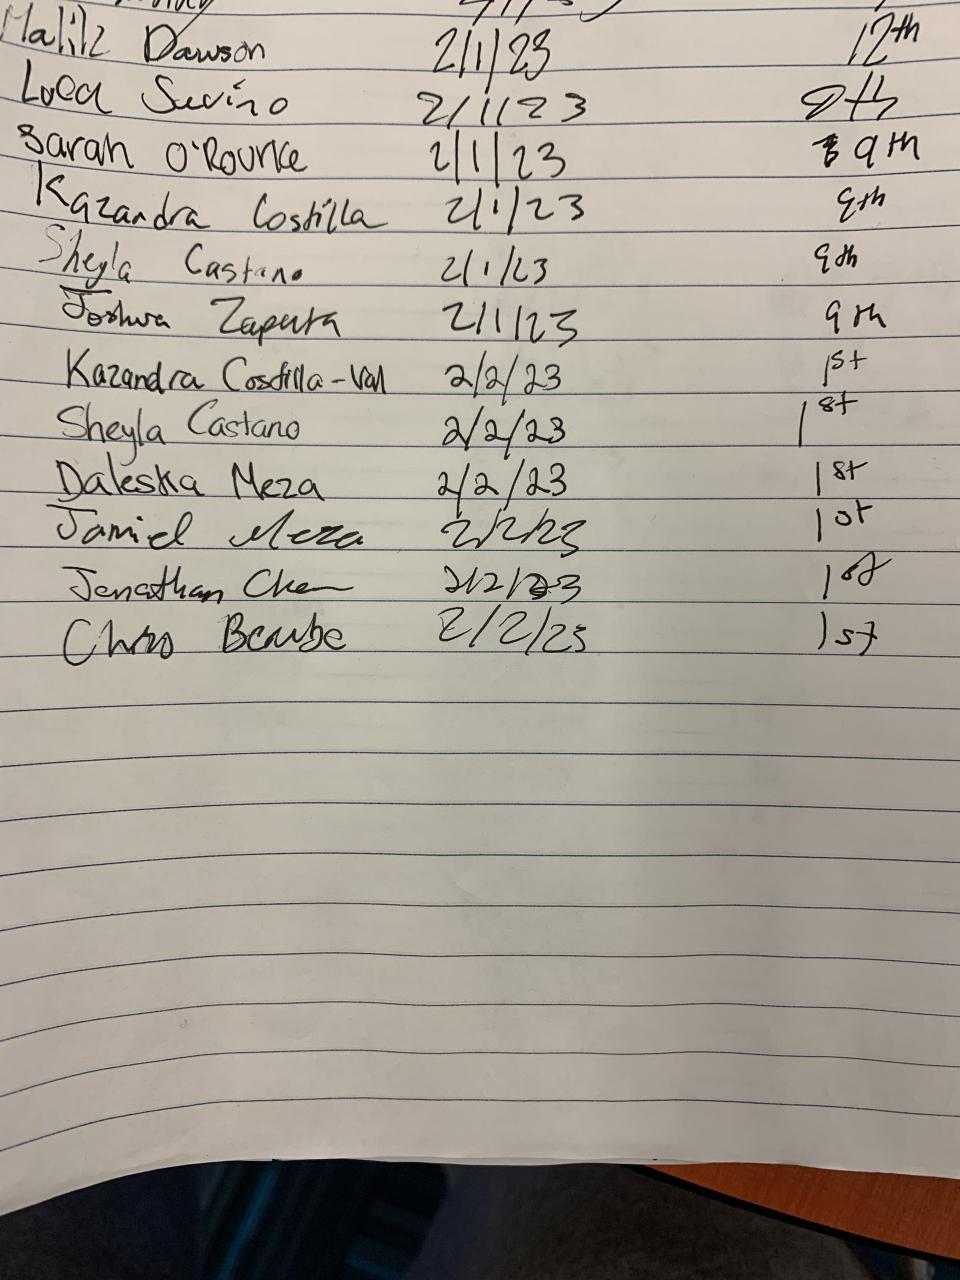 Malilz Dawson 2/1/23 12th
Luca Savino 2/1/23 9th
Sarah O'Rourke 2/1/23 9th
Kazandra Costilla 2/1/23 9th
Sheyla Castano 2/1/23 9th
Joshua Zapata 2/1/23 9th
Kazandra Costilla-Val 2/2/23 1st
Sheyla Castano 2/2/23 1st
Daleska Meza 2/2/23 1st
Jamiel Meza 2/2/23 1st
Jonathan Chen 2/2/23 1st
2/2/23 1st